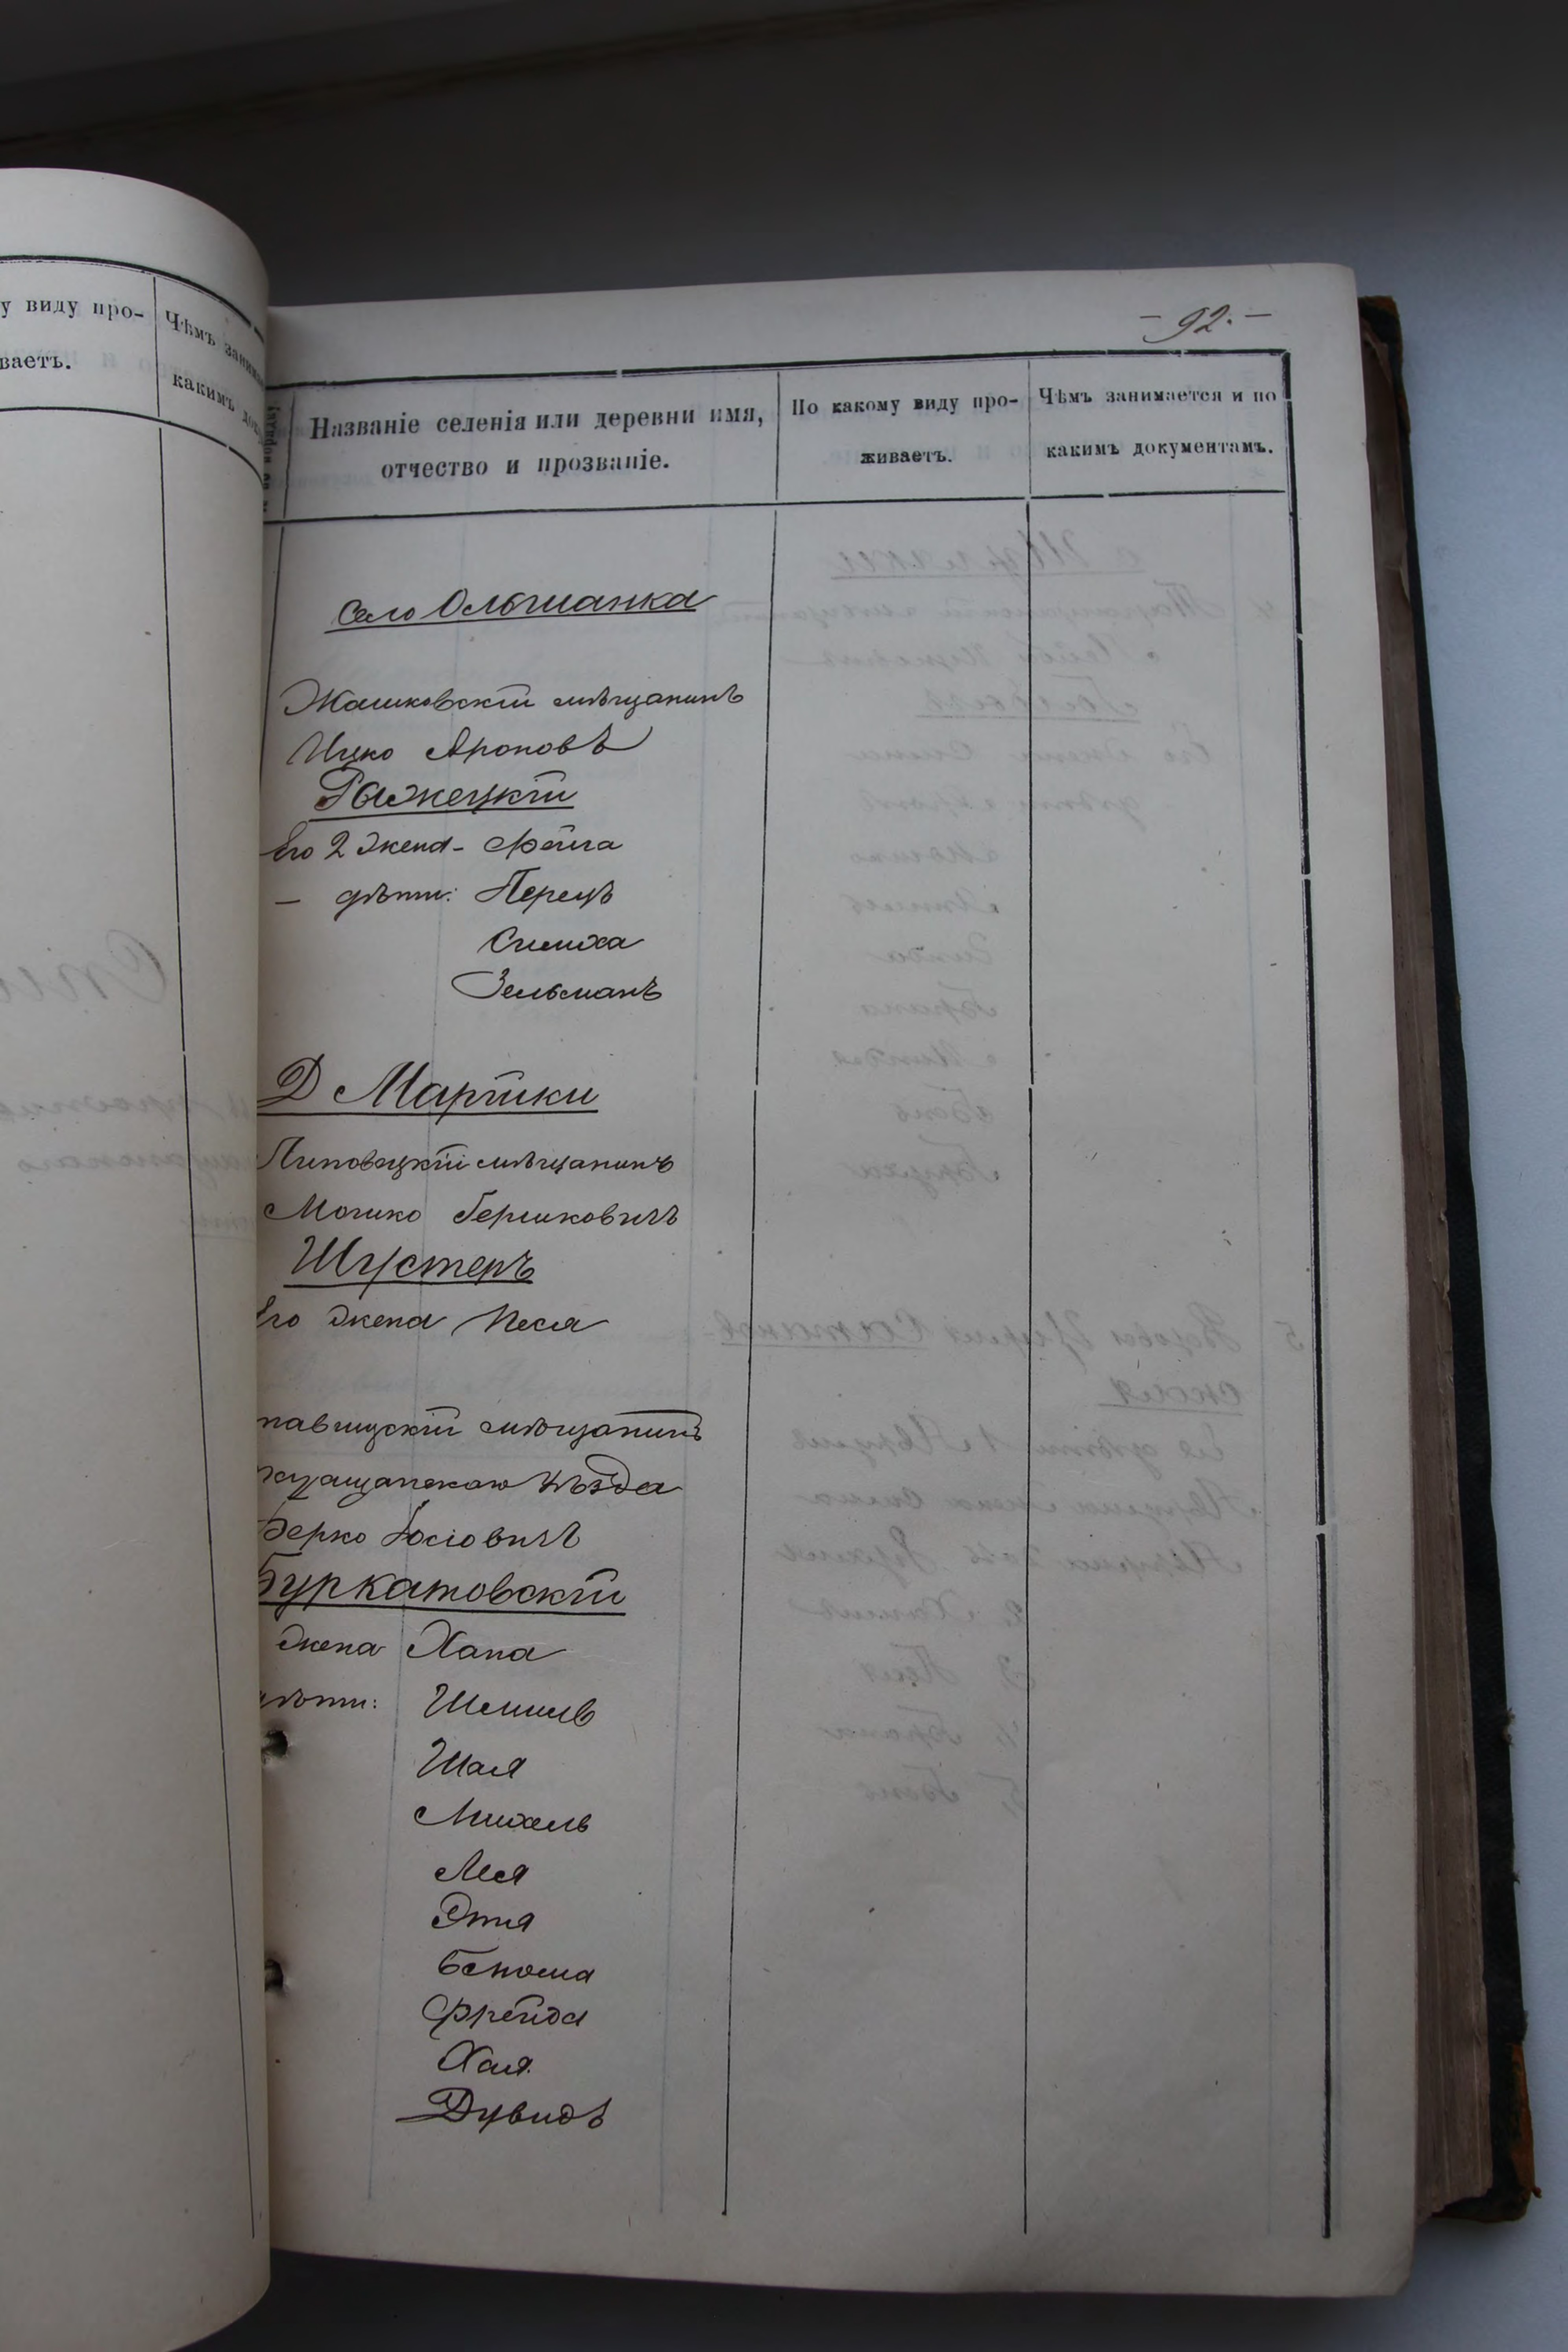 у виду про-
ваетъ.
Чѣмъ
какимъ
- 92. -
Названіе селенія или деревни имя,
отчество и прозваніе.
По какому виду про-
живаетъ.
Чѣмъ занимается и по
какимъ документамъ.
Село Ольшанка
Жашковскій мѣщанинъ
Ицко Ароновъ
Ражецкій
Его 2 жена - Фейга
— дѣти: Перецъ
Симха
Зельманъ
Д Марійки
Липовецкій мѣщанинъ
Мошко Гершковичъ
Шустеръ
Его жена Песя
тавищскій мѣщанинъ
уѣзда
Берко Іосіовичъ
Буркатовскій
жена Хана
дѣти:
Шая
Михель
Лея
Этя
Фрейда
Хая
Дувидъ